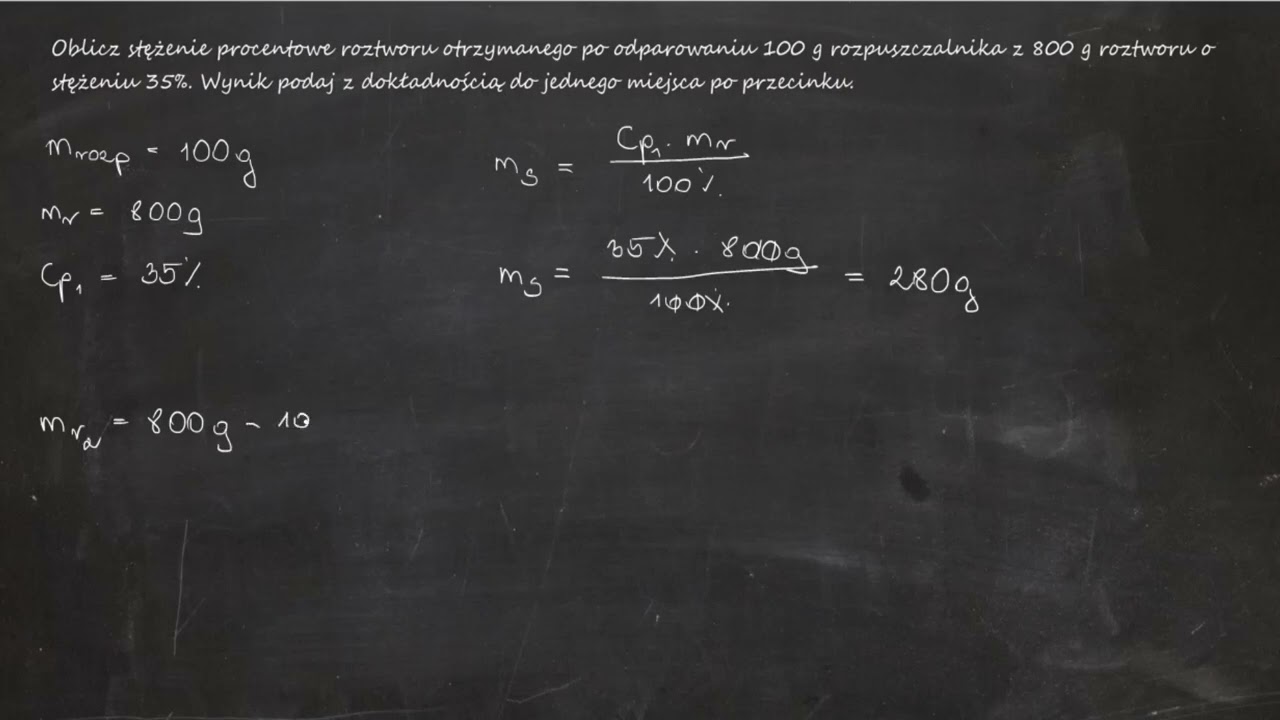 Oblicz stężenie procentowe roztworu otrzymanego po odparowaniu 100 g rozpuszczalnika z 800 g roztworu o
stężeniu 35%. Wynik podaj z dokładnością do jednego miejsca po przecinku.
m_rozp = 100g
m_r = 800g
Cp₁ = 35%
m_s = Cp₁ · m_r / 100%
m_s = 35% · 800g / 100% = 280g
m_r₂ = 800g - 10